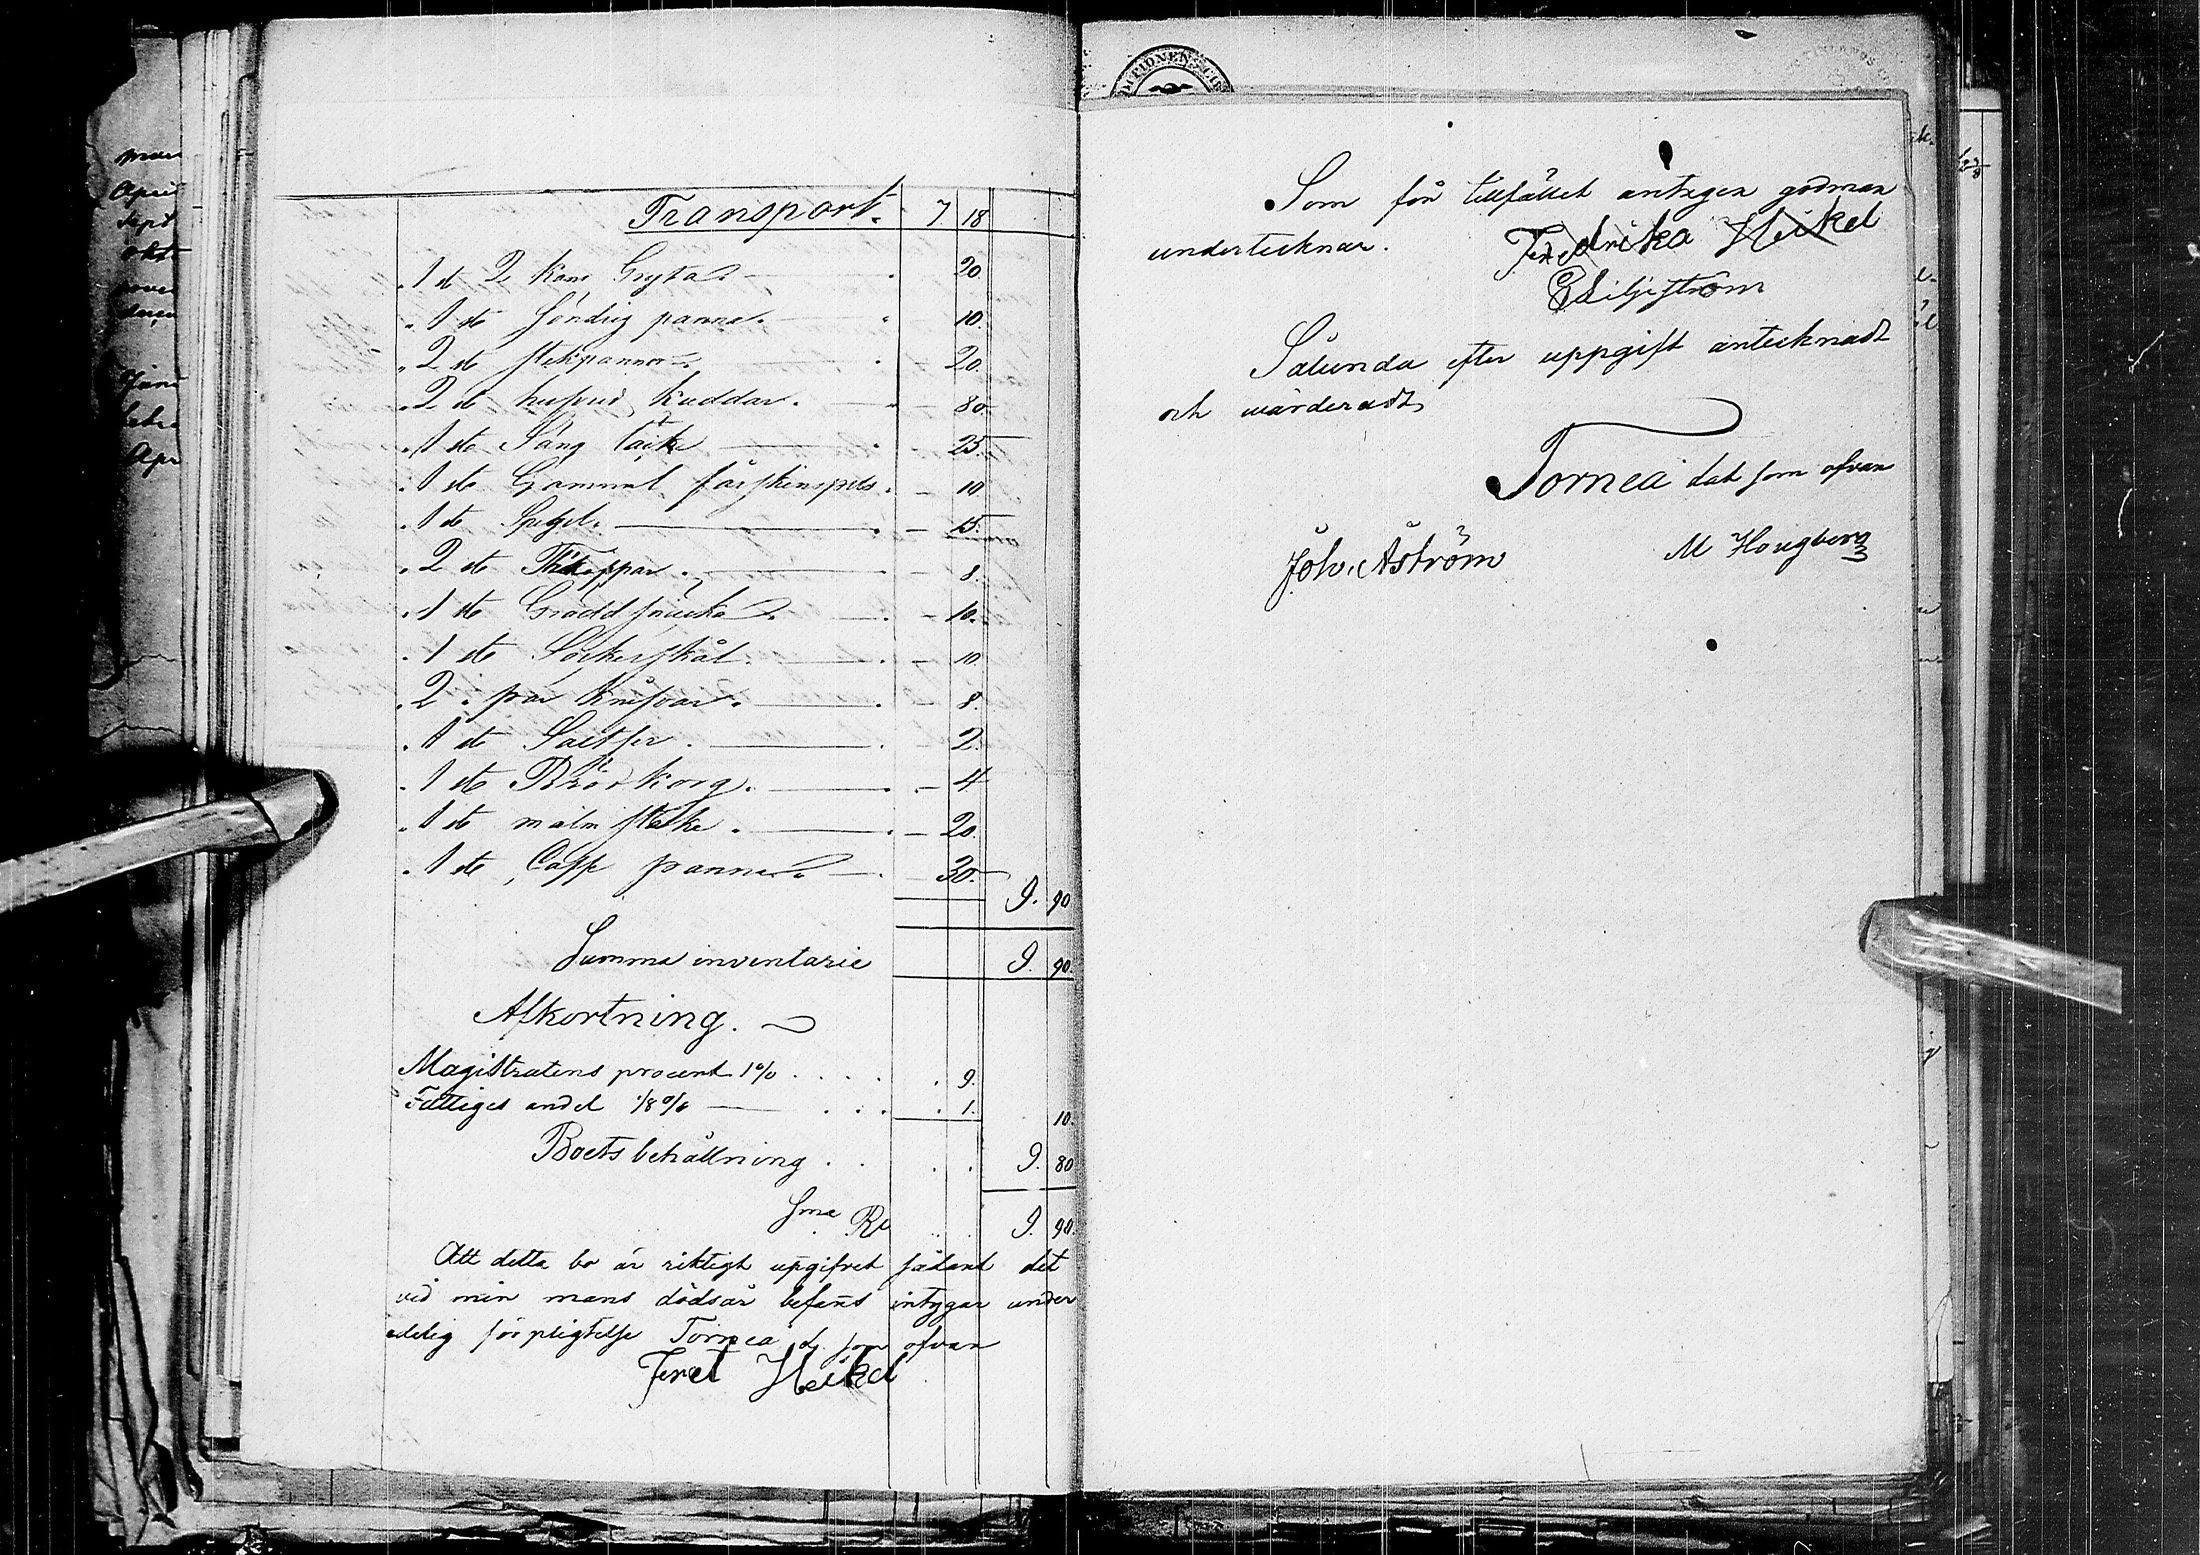 Transport. 7. 18
1 st 2 Kans Gryta. 20
1 st söndrig panna. 10.
2 st stekpannor. 20.
2 st hufvud Kuddar. 80
1 st Säng täcke 25.
1 st Gammal fårskinspels. 10
1 st Spegel. 15.
2 st Thékoppar. 8.
1 st Grädd snäcka. 10.
1 st Sockerskål. 10.
2 par Knifvar. 8.
1 st Saltser. 2.
1 st Brödkorg. 4
1 st malm stake. 20.
1 st Caffe panna. 30.
9. 90
Summa inventarie 9. 90.
Afkortning.
Magistratens procent 1% . . . . 9.
Fattiges andel 1/8 % . . . 1. 10.
Boets behållning . . . . 9. 80
Sma Rb 9. 90.
Att detta bo är riktigt upgifvet sådant det
vid min mans dödsår befans intygar under
edelig förpligtelse Torneå d. som ofvan
Fred Heikel
Som för tillfället antagen godman
undertecknar. Fredrika Heikel
E Liljeström
Sålunda efter uppgift antecknadt
och värderadt,
Torneå dat som ofvan
Joh. Åström M Hougberg